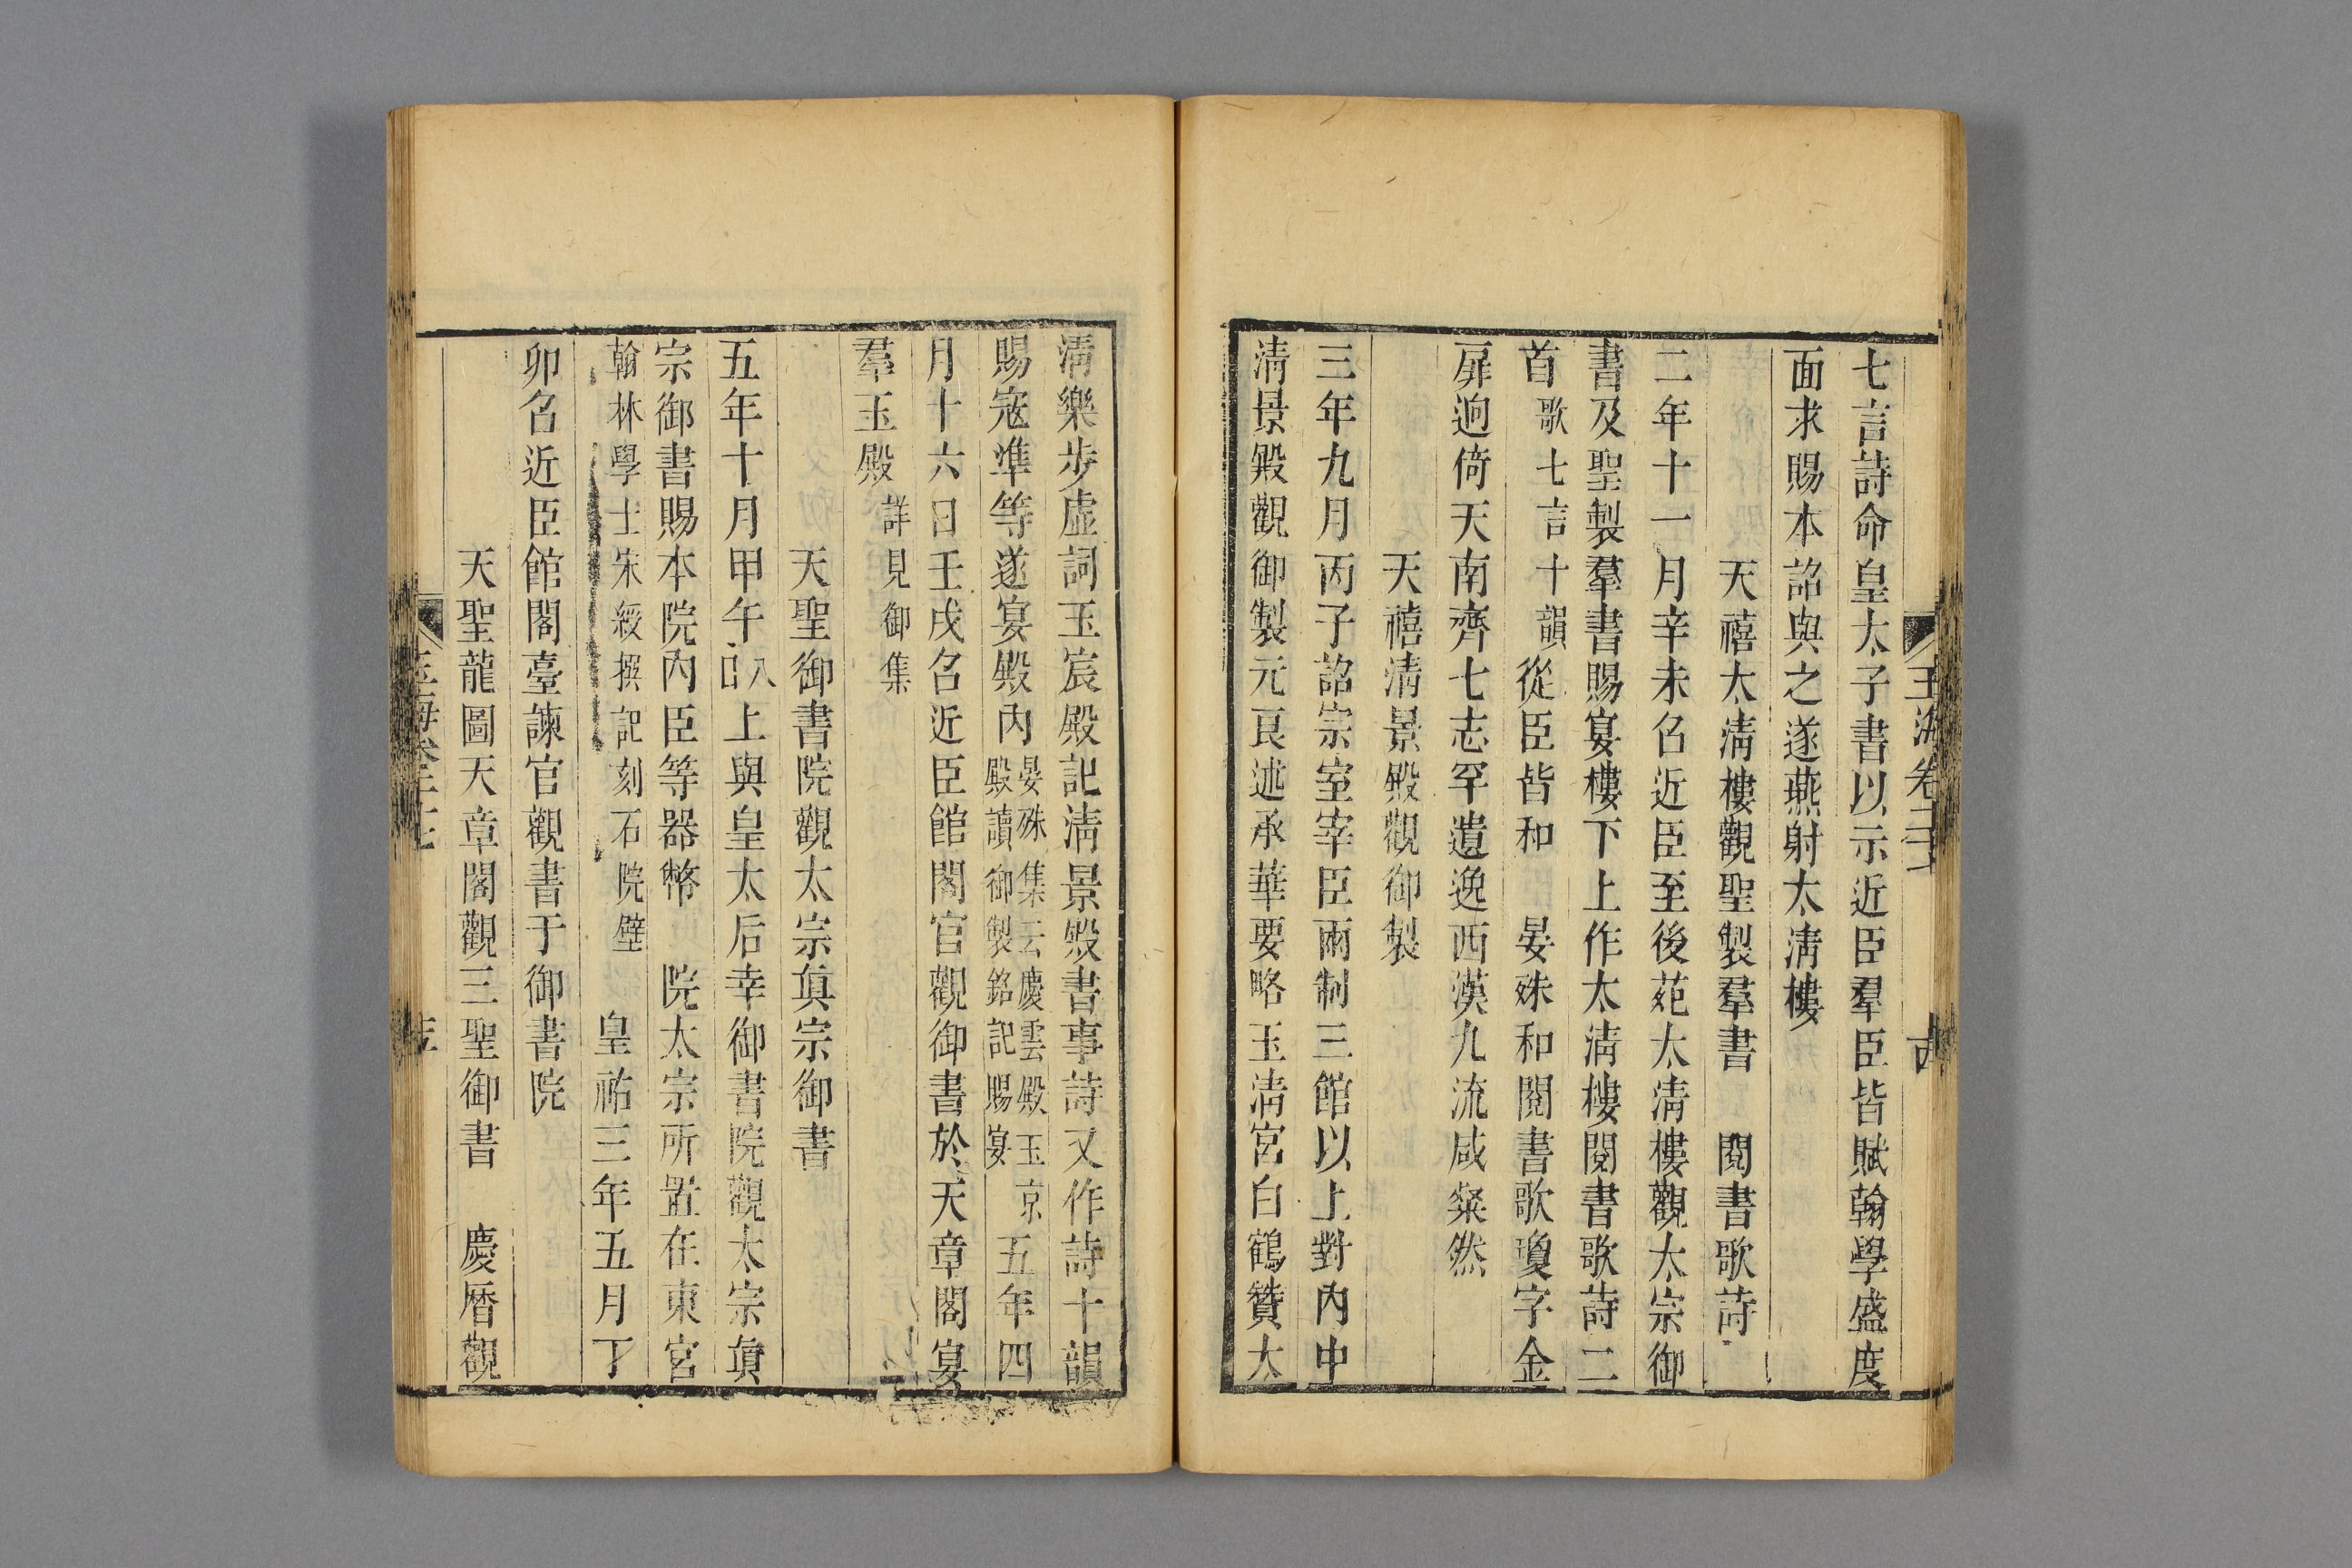 玉海卷二十七
七言詩命皇太子書以示近臣羣臣皆賦翰學盛度
面求賜本詔與之遂燕射太淸樓
天禧太淸樓觀聖製羣書 閱書歌詩
二年十一月辛未召近臣至後苑太淸樓觀太宗御
書及聖製羣書賜宴樓下上作太淸樓閱書歌詩二
首歌七言十韻從臣皆和 晏殊和閱書歌瓊字金
扉逈倚天南齊七志罕遺逸西漢九流咸粲然
天禧淸景殿觀御製
三年九月丙子詔宗室宰臣兩制三館以上對內中
淸景殿觀御製元良述承華要略玉淸宮白鶴贊太
淸樂步虛詞玉宸殿記淸景殿書事詩又作詩十韻
賜寇準等遂宴殿內晏殊集云慶雲殿玉京殿讀御製銘記賜宴五年四
月十六日壬戌召近臣館閣官觀御書於天章閣宴
羣玉殿詳見御集
天聖御書院觀太宗眞宗御書
五年十月甲午八日上與皇太后幸御書院觀太宗眞
宗御書賜本院內臣等器幣 院太宗所置在東宮
翰林學士宋綬撰記刻石院壁 皇祐三年五月丁
卯召近臣館閣臺諫官觀書于御書院
天聖龍圖天章閣觀三聖御書 慶曆觀
玉海卷二十七